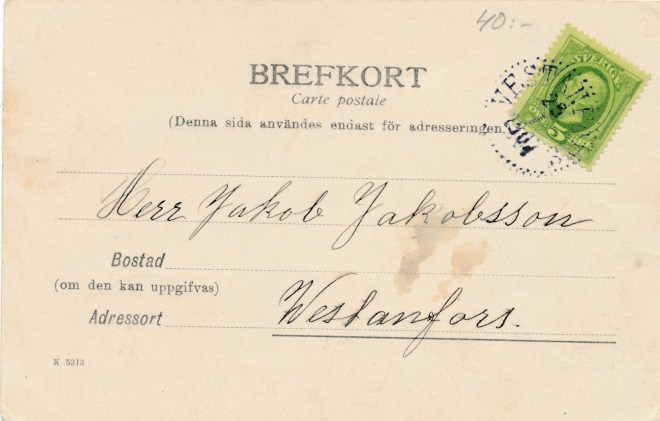 40:-
SVERIGE
5
1904
BREFKORT
Carte postale
(Denna sida användes endast för adresseringen.
Herr Jakob Jakobsson
Bostad
(om den kan uppgifvas)
Adressort Westanfors.
K 5313